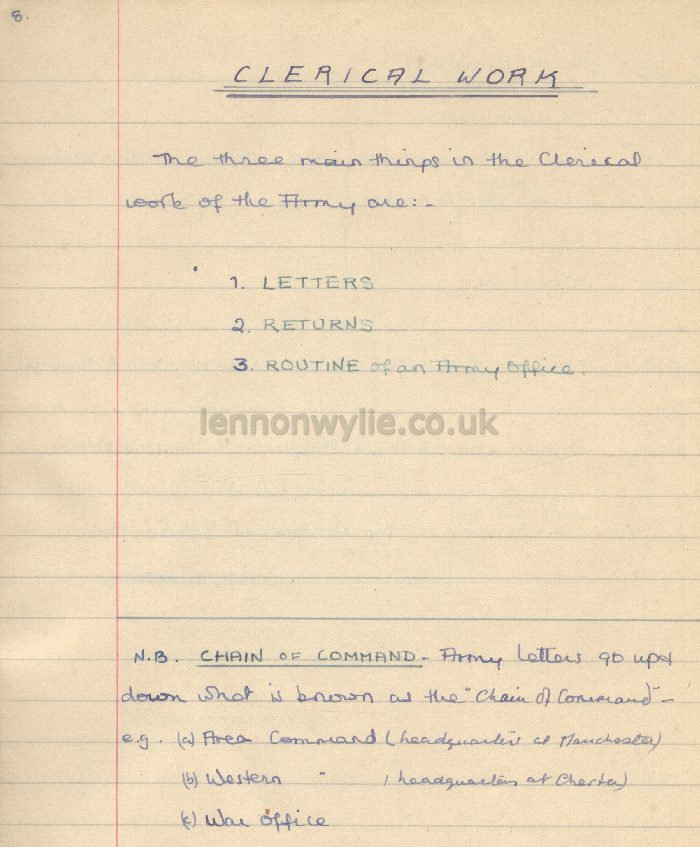 8.
CLERICAL WORK
The three main things in the Clerical
work of the Army are:-
1. LETTERS
2. RETURNS
3. ROUTINE of an Army Office.
lennonwylie.co.uk
N.B. CHAIN OF COMMAND - Army Letters go up &
down what is known as the "Chain of Command" -
e.g. (a) Area Command (headquarters at Manchester)
(b) Western " (headquarters at Chester)
(c) War Office